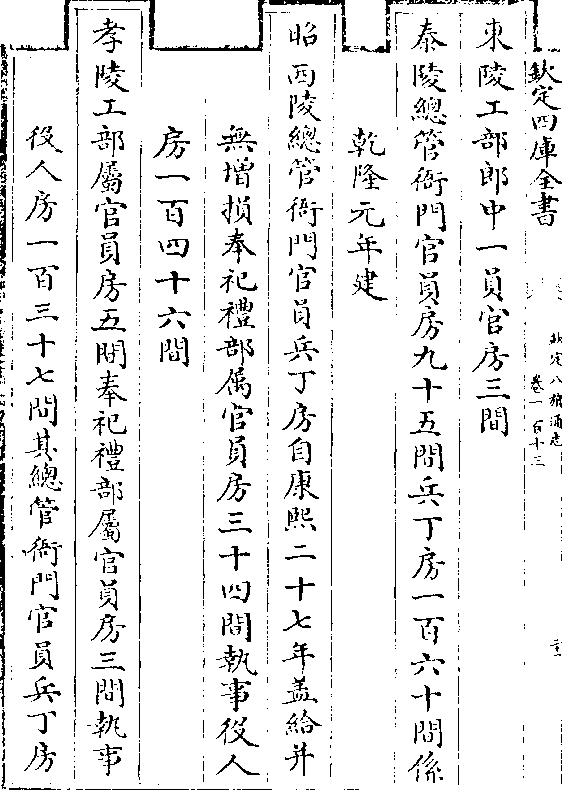 欽定四庫全書
欽定八旗通志
卷一百十三
東陵工部郎中一員官房三間
泰陵總管衙門官員房九十五間兵丁房一百六十間係
乾隆元年建
昭西陵總管衙門官員兵丁房自康熙二十七年蓋給并
無增損奉祀禮部屬官員房三十四間執事役人
房一百四十六間
孝陵工部屬官員房五間奉祀禮部屬官員房三間執事
役人房一百三十七間其總管衙門官員兵丁房